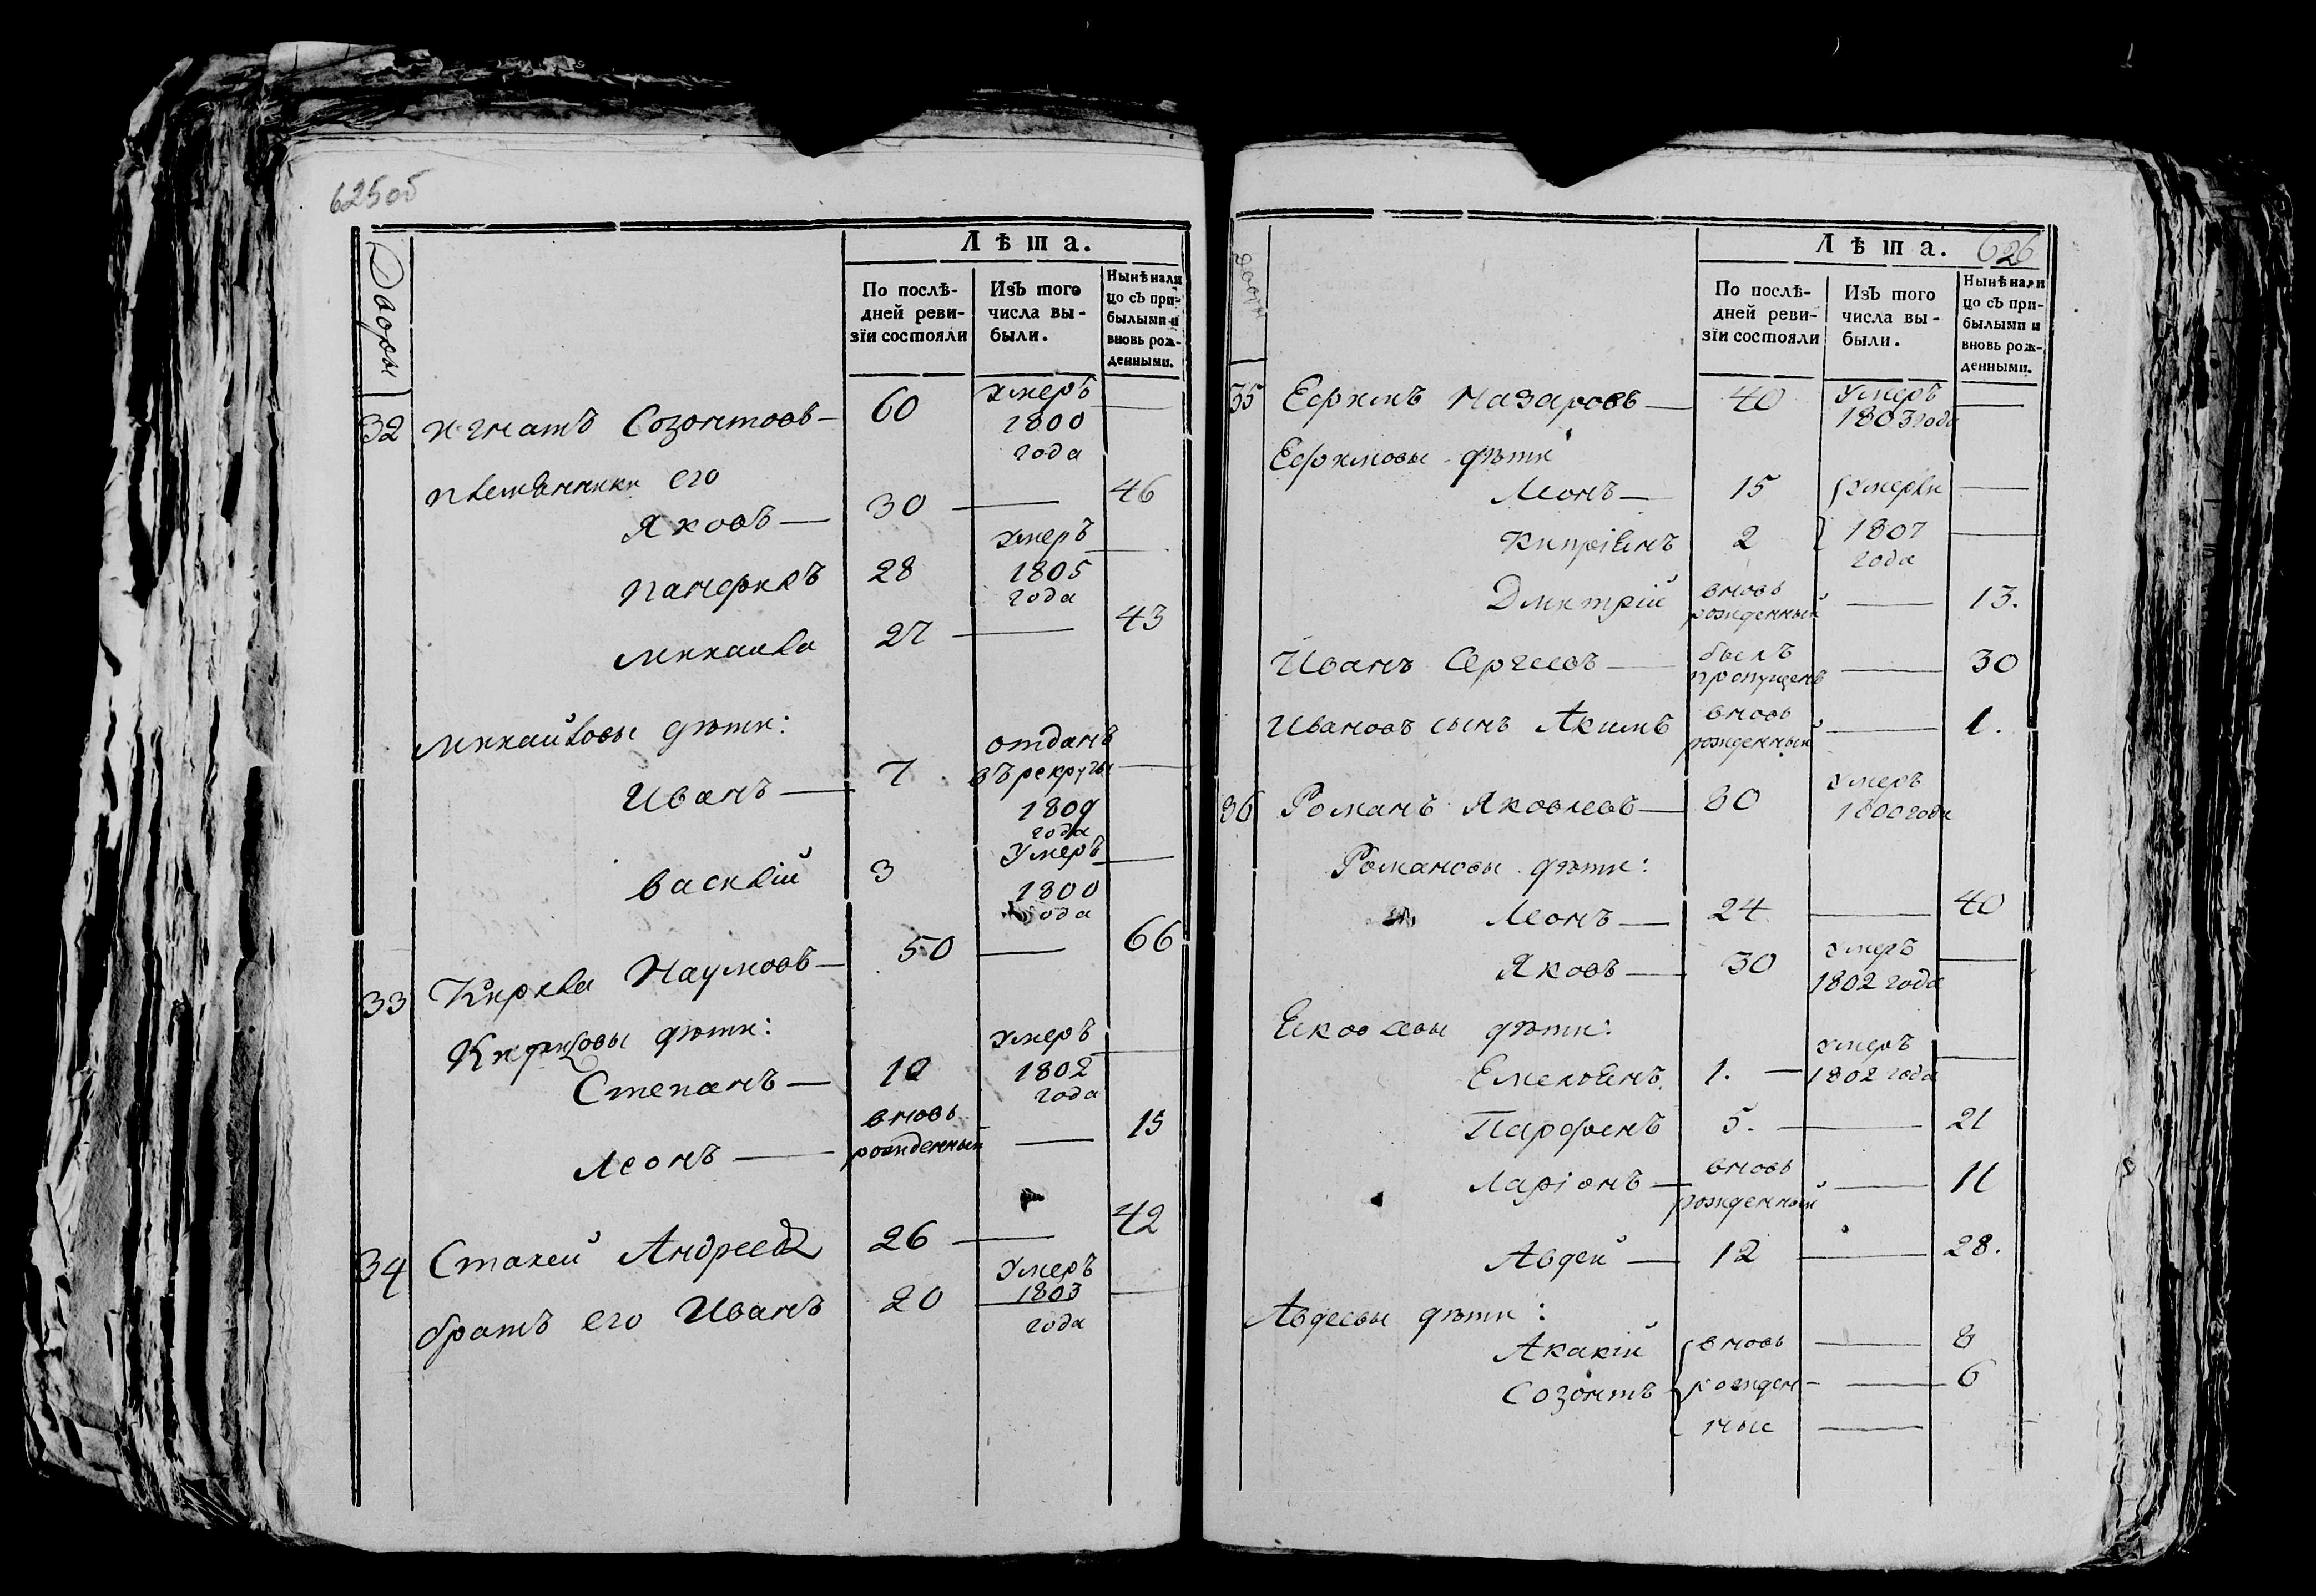 625об
Дворы
Лѣта.
По послѣ-
дней реви-
зіи состояли
Изъ того
числа вы-
были.
Нынѣ нали
цо съ при-
былыми и
вновь рож-
денными.
32 игнатъ Созонтовъ — 60 умеръ 1800 года —
племянники его
Яковъ — 30 — 46
панфилъ 28 умеръ 1805 года —
михаила 27 — 43
михайловы дѣти:
Иванъ — 7 отданъ въ рекруты 1809 года —
василій 3 Умеръ 1800 года —
33 Кирила Наумовъ — 50 — 66
Кириловы дѣти:
Степанъ — 12 умеръ 1802 года —
Леонъ — вновь рожденный — 15
34 Стахей Андреевъ 26 — 42
братъ его Иванъ 20 Умеръ 1803 года —
626
дворы
Лѣта.
По послѣ-
дней реви-
зіи состояли
Изъ того
числа вы-
были.
Нынѣ нали
цо съ при-
былыми и
вновь рож-
денными.
35 Ефимъ Назаровъ — 40 Умеръ 1803 года —
Ефимовы дѣти
Леонъ — 15 умерли —
Кипріянъ 2 1807 года —
Дмитрій вновь рожденный — 13.
Иванъ Сергеевъ — былъ пропущенъ — 30
Ивановъ сынъ Акимъ вновь рожденный — 1.
36 Романъ Яковлевъ — 80 умеръ 1800 года
Романовы дѣти:
Леонъ — 24 — 40
Яковъ — 30 умеръ 1802 года —
Яковлевы дѣти:
Емельянъ 1. — умеръ 1802 года —
Парфенъ 5. — 21
Ларіонъ — вновь рожденный — 11
Авдей — 12 — 28.
Авдеевы дѣти:
Акакій вновь — 8
Созонтъ рожден- — 6
ные —